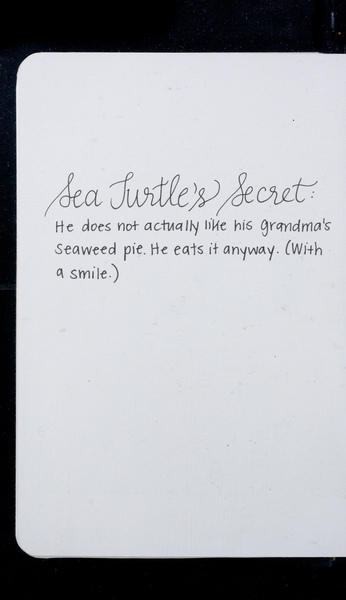 Sea Turtle's Secret:
He does not actually like his grandma's
seaweed pie. He eats it anyway. (With
a smile.)